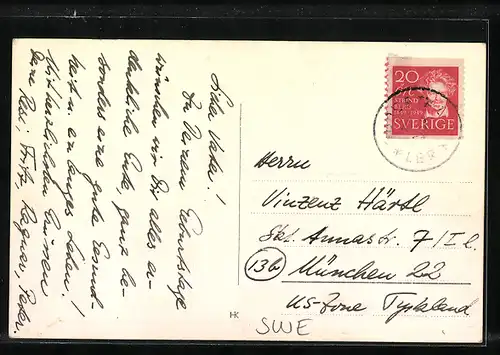 Lieber Vater!
Zu Deinem Geburtstage
wünschen wir Dir alles er-
denkliche Gute, ganz be-
sonders eine gute Gesund-
heit u. ein langes Leben!
Mit herzlichsten Grüssen
Resi, Fritz, Ragnar, Peter,
20
STRIND
BERG
1849 1949
SVERIGE
Herrn
Vinzenz Härtl
Skt. Annastr. 7/I l.
13b München 22
US-Zone Tyskland
HK
SWE